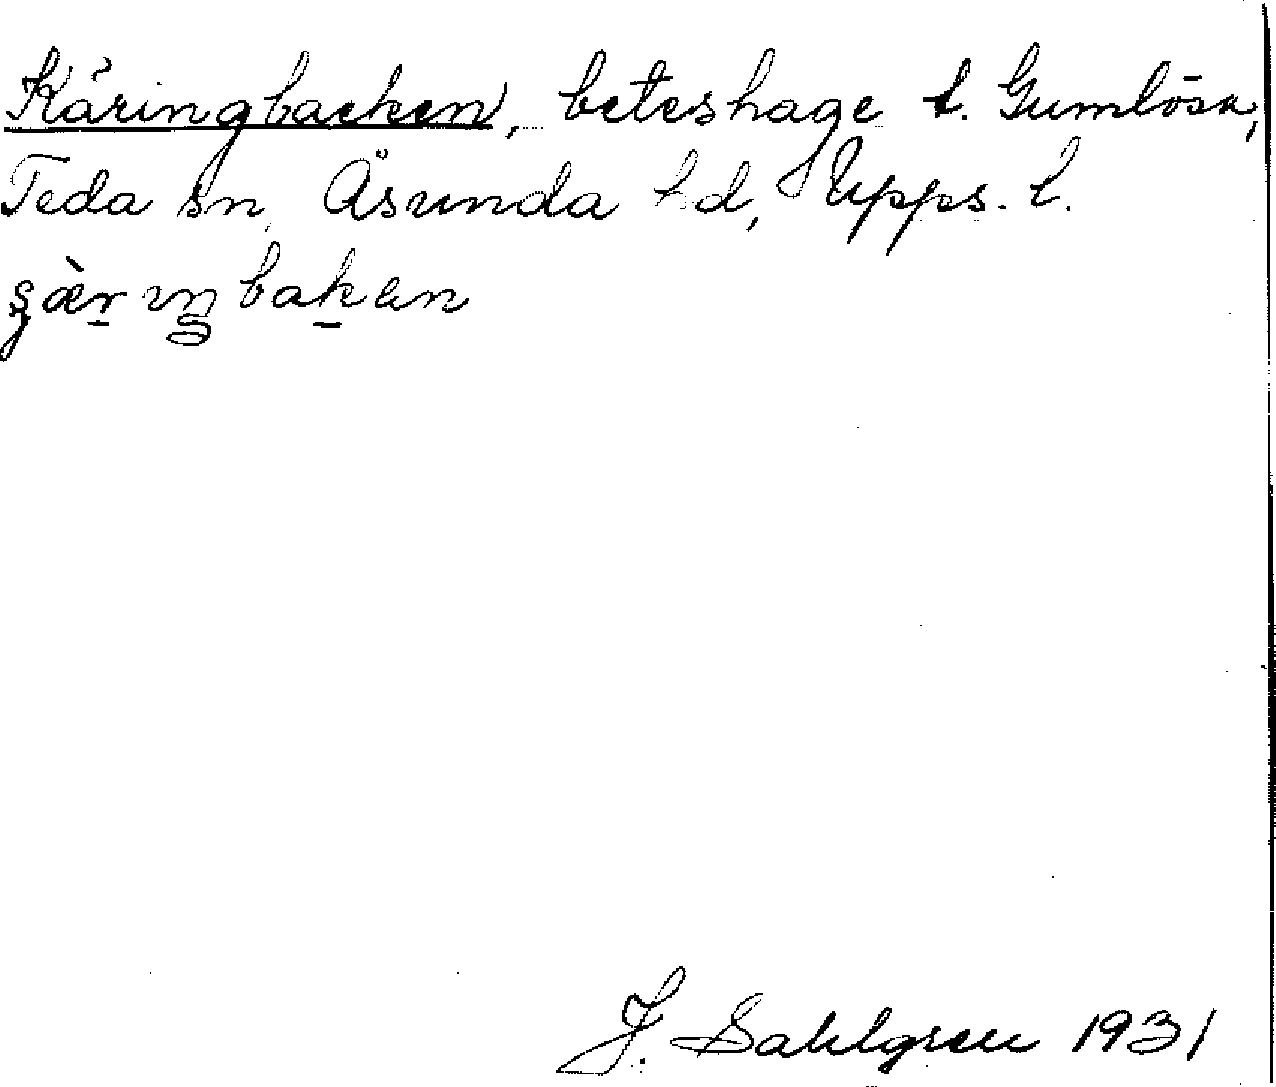 Käringbacken, beteshage t. Gumlösa,
Teda sn, Åsunda hd, Upps. l.
J. Sahlgren 1931